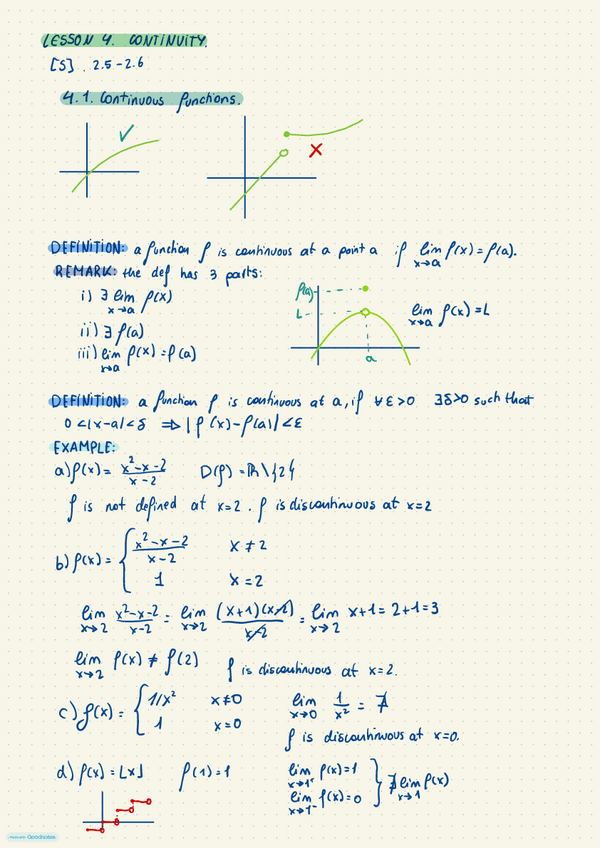 LESSON 4. CONTINUITY.
[S] . 2.5 - 2.6
4.1. Continuous functions.
DEFINITION: a function f is continuous at a point a if lim x→a f(x) = f(a).
REMARK: the def has 3 parts:
i) ∃ lim x→a f(x)
ii) ∃ f(a)
iii) lim x→a f(x) = f(a)
f(a)
L
a
lim x→a f(x) = L
DEFINITION: a function f is continuous at a, if ∀ε>0 ∃δ>0 such that
0<|x-a|<δ ⇒ |f(x)-f(a)|<ε
EXAMPLE:
a) f(x) = x²-x-2 / x-2 D(f) = ℝ\{2}
f is not defined at x=2. f is discontinuous at x=2
b) f(x) = { x²-x-2 / x-2 x≠2
1 x=2
lim x→2 x²-x-2 / x-2 = lim x→2 (x+1)(x-2) / x-2 = lim x→2 x+1 = 2+1 = 3
lim x→2 f(x) ≠ f(2) f is discontinuous at x=2.
c) f(x) = { 1/x² x≠0 lim x→0 1/x² = ∄
1 x=0
f is discontinuous at x=0.
d) f(x) = ⌊x⌋ f(1)=1 lim x→1⁺ f(x)=1
lim x→1⁻ f(x)=0 } ∄ lim x→1 f(x)
Made with Goodnotes